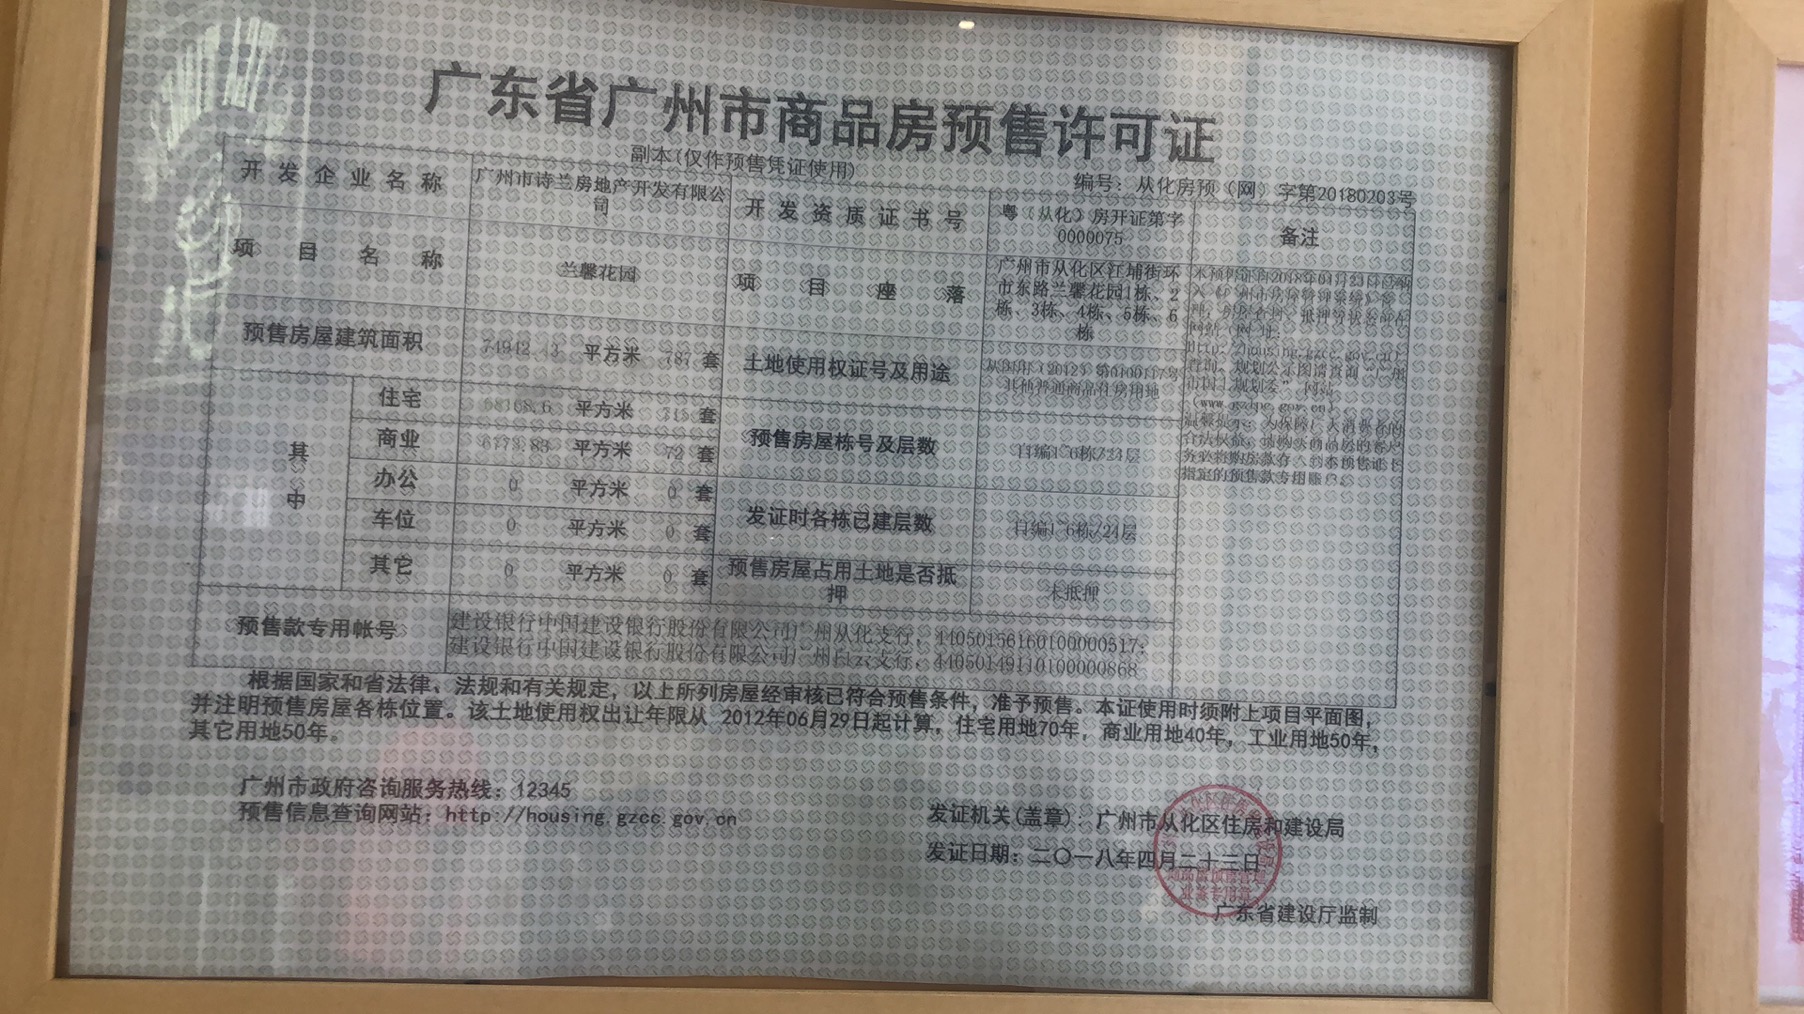 广东省广州市商品房预售许可证
副本(仅作预售凭证使用)
编号：从化房预（网）字第20180203号
开发企业名称
广州市诗兰房地产开发有限公
司
开发资质证书号
粤（从化）房开证第字
0000075
备注
项目名称
兰馨花园
项目座落
广州市从化区江埔街环
市东路兰馨花园1栋、2
栋、3栋、4栋、5栋、6
栋
网站（网址：
http://housing.gzcc.gov.cn）
查询，规划公示图请查询“广州
市国土规划委”网站
合法权益，请购买商品房的客户
务必将购房款存入到本预售证上
指定的预售款专用账户。
预售房屋建筑面积
74942.43 平方米 787 套
土地使用权证号及用途
其他普通商品住房用地
其中
住宅
68168.6 平方米 715 套
商业
6773.83 平方米 72 套
预售房屋栋号及层数
自编1~6栋/24层
办公
0 平方米 0 套
车位
0 平方米 0 套
发证时各栋已建层数
自编1~6栋/24层
其它
0 平方米 0 套
预售房屋占用土地是否抵
押
未抵押
预售款专用帐号
建设银行中国建设银行股份有限公司广州从化支行，44050156160100000517；
建设银行中国建设银行股份有限公司广州白云支行，44050149110100000868
根据国家和省法律、法规和有关规定，以上所列房屋经审核已符合预售条件，准予预售。本证使用时须附上项目平面图，
并注明预售房屋各栋位置。该土地使用权出让年限从 2012年06月29日起计算，住宅用地70年，商业用地40年，工业用地50年，
其它用地50年。
广州市政府咨询服务热线：12345
预售信息查询网站：http://housing.gzcc.gov.cn
发证机关(盖章)：广州市从化区住房和建设局
发证日期：二〇一八年四月二十三日
广东省建设厅监制